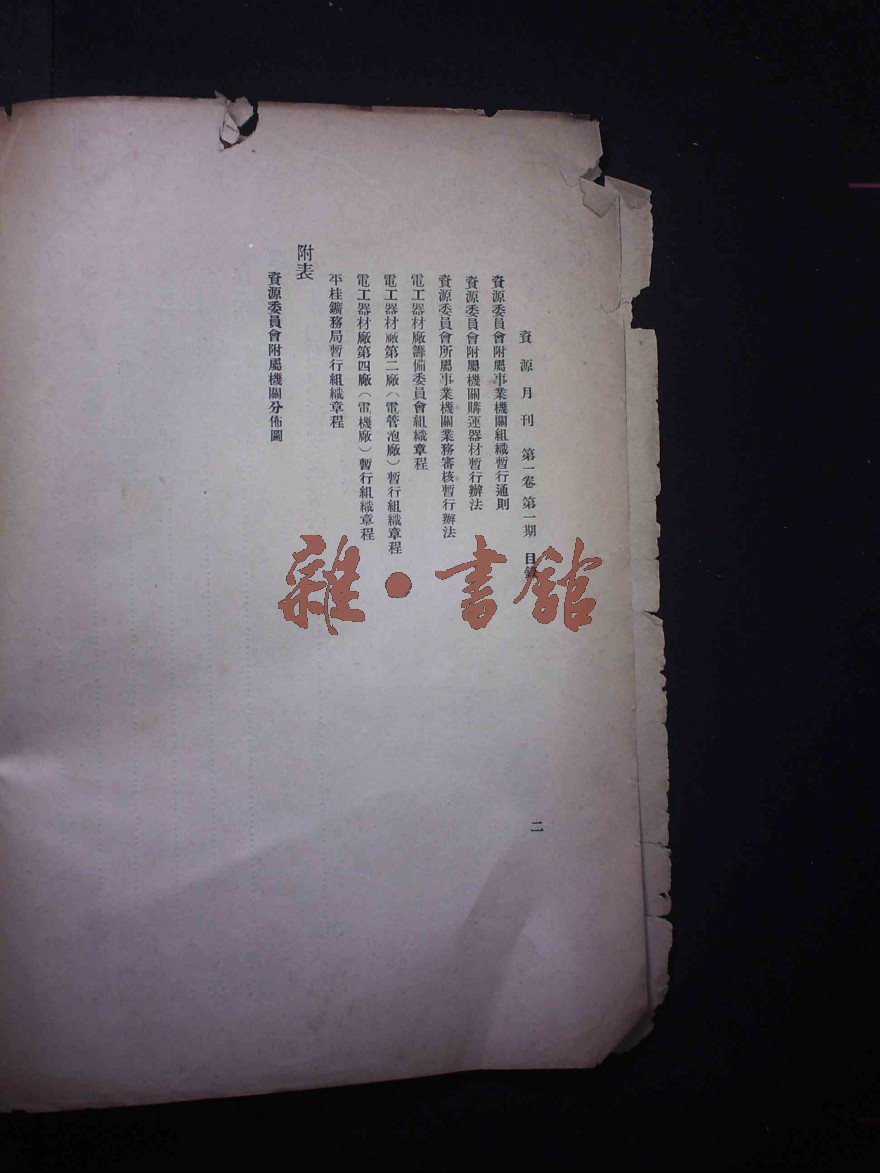 資源月刊 第一卷 第一期 目錄
二
資源委員會附屬事業機關組織暫行通則
資源委員會附屬機關購運器材暫行辦法
資源委員會所屬事業機關業務審核暫行辦法
電工器材廠籌備委員會組織章程
電工器材廠第二廠(電管泡廠)暫行組織章程
電工器材廠第四廠(電機廠)暫行組織章程
平桂鑛務局暫行組織章程
附表
資源委員會附屬機關分佈圖
雜·書館